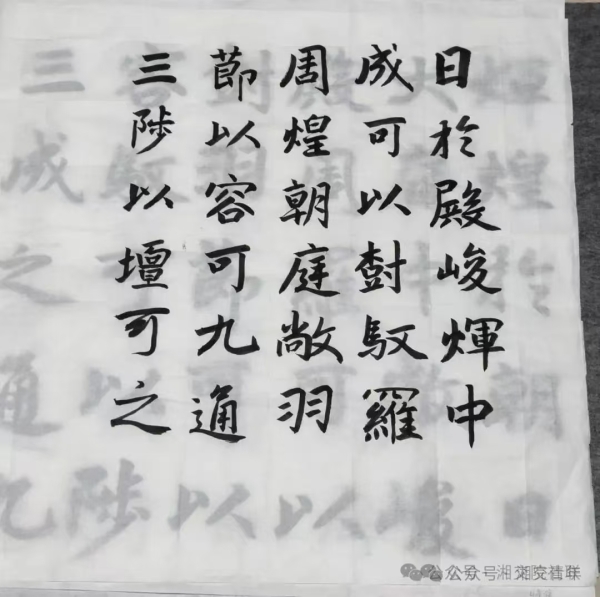 日於殿峻煇中
成可以樹馭羅
周煌朝庭敞羽
節以容可九通
三陟以壇可之
公众号